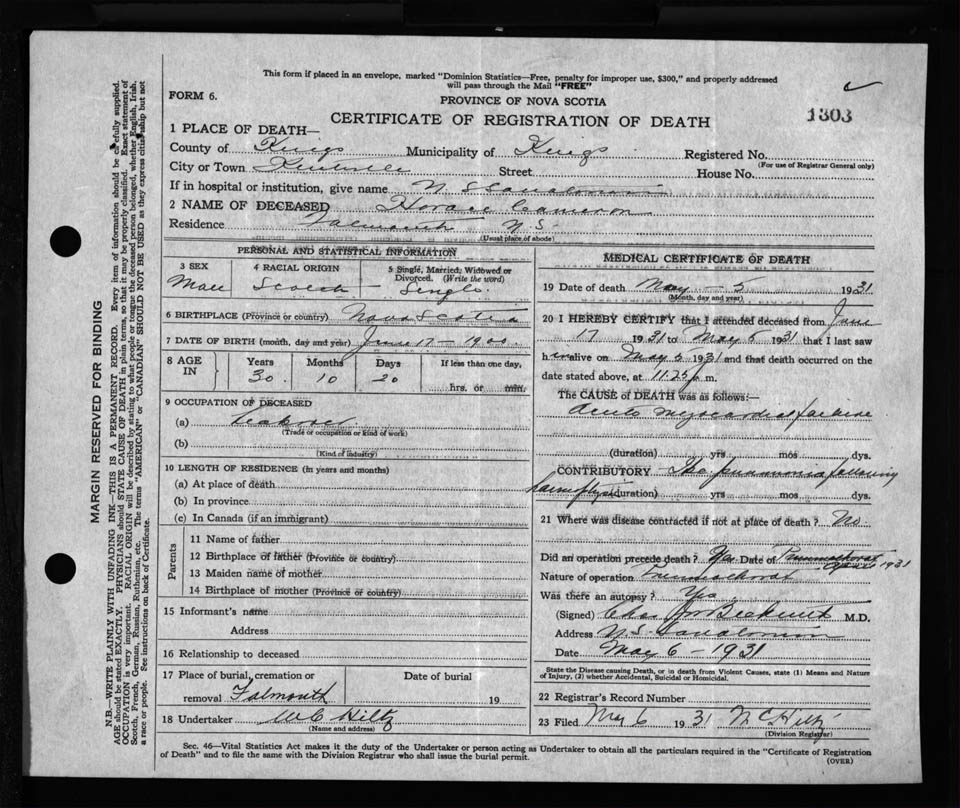 This form if placed in an envelope, marked "Dominion Statistics—Free, penalty for improper use, $300," and properly addressed
will pass through the Mail "FREE"
FORM 6.
PROVINCE OF NOVA SCOTIA
CERTIFICATE OF REGISTRATION OF DEATH
1303
1 PLACE OF DEATH—
County of Kings Municipality of Kings Registered No.
(For use of Registrar General only)
City or Town Kentville Street House No.
If in hospital or institution, give name N. S. Sanatorium
2 NAME OF DECEASED Horace Cameron
Residence Falmouth N.S.
(Usual place of abode)
PERSONAL AND STATISTICAL INFORMATION
3 SEX
Male
4 RACIAL ORIGIN
Scotch
5 Single, Married, Widowed or
Divorced. (Write the word)
Single
6 BIRTHPLACE (Province or country) Nova Scotia
7 DATE OF BIRTH (month, day and year) June 17 — 1900
8 AGE
IN
Years Months Days If less than one day,
30 10 20
hrs. or min.
9 OCCUPATION OF DECEASED
(a)
(Trade or occupation or kind of work)
(b)
(Kind of industry)
10 LENGTH OF RESIDENCE (in years and months)
(a) At place of death
(b) In province
(c) In Canada (if an immigrant)
Parents
11 Name of father
12 Birthplace of father (Province or country)
13 Maiden name of mother
14 Birthplace of mother (Province or country)
15 Informant's name
Address
16 Relationship to deceased
17 Place of burial, cremation or
removal Falmouth
Date of burial
19
18 Undertaker W C Hiltz
(Name and address)
MEDICAL CERTIFICATE OF DEATH
19 Date of death May — 5 1931
(Month, day and year)
20 I HEREBY CERTIFY that I attended deceased from June
17 1931 to May 5 1931 that I last saw
him alive on May 5 1931 and that death occurred on
date stated above, at 11.25 p. m.
The CAUSE OF DEATH was as follows:—
Acute myocardial failure
(duration) yrs mos dys.
CONTRIBUTORY pneumonia following
(duration) yrs mos dys.
21 Where was disease contracted if not at place of death? No
Did an operation precede death? Yes Date of
1931
Nature of operation
Was there an autopsy? Yes
(Signed) Chas J Beckwith M.D.
Address N.S. Sanatorium
Date May 6 — 1931
State the Disease causing Death, or in death from Violent Causes, state (1) Means and Nature
of Injury, (2) whether Accidental, Suicidal or Homicidal.
22 Registrar's Record Number
23 Filed May 6 1931 W C Hiltz
(Division Registrar)
Sec. 46—Vital Statistics Act makes it the duty of the Undertaker or person acting as Undertaker to obtain all the particulars required in the "Certificate of Registration
of Death" and to file the same with the Division Registrar who shall issue the burial permit.
(OVER)
MARGIN RESERVED FOR BINDING
N.B.—WRITE PLAINLY WITH UNFADING INK—THIS IS A PERMANENT RECORD. Every item of information should be carefully supplied.
AGE should be stated EXACTLY. PHYSICIANS should STATE CAUSE OF DEATH in plain terms, so that it may be properly classified. Exact statement of
OCCUPATION is very important. RACIAL ORIGIN will be described by stating to what people or tongue the deceased person belonged, whether English, Irish,
Scotch, French, German, Russian, Ruthenian, etc. The terms "AMERICAN" or "CANADIAN" SHOULD NOT BE USED as they express citizenship but not
a race or people. See instructions on back of Certificate.